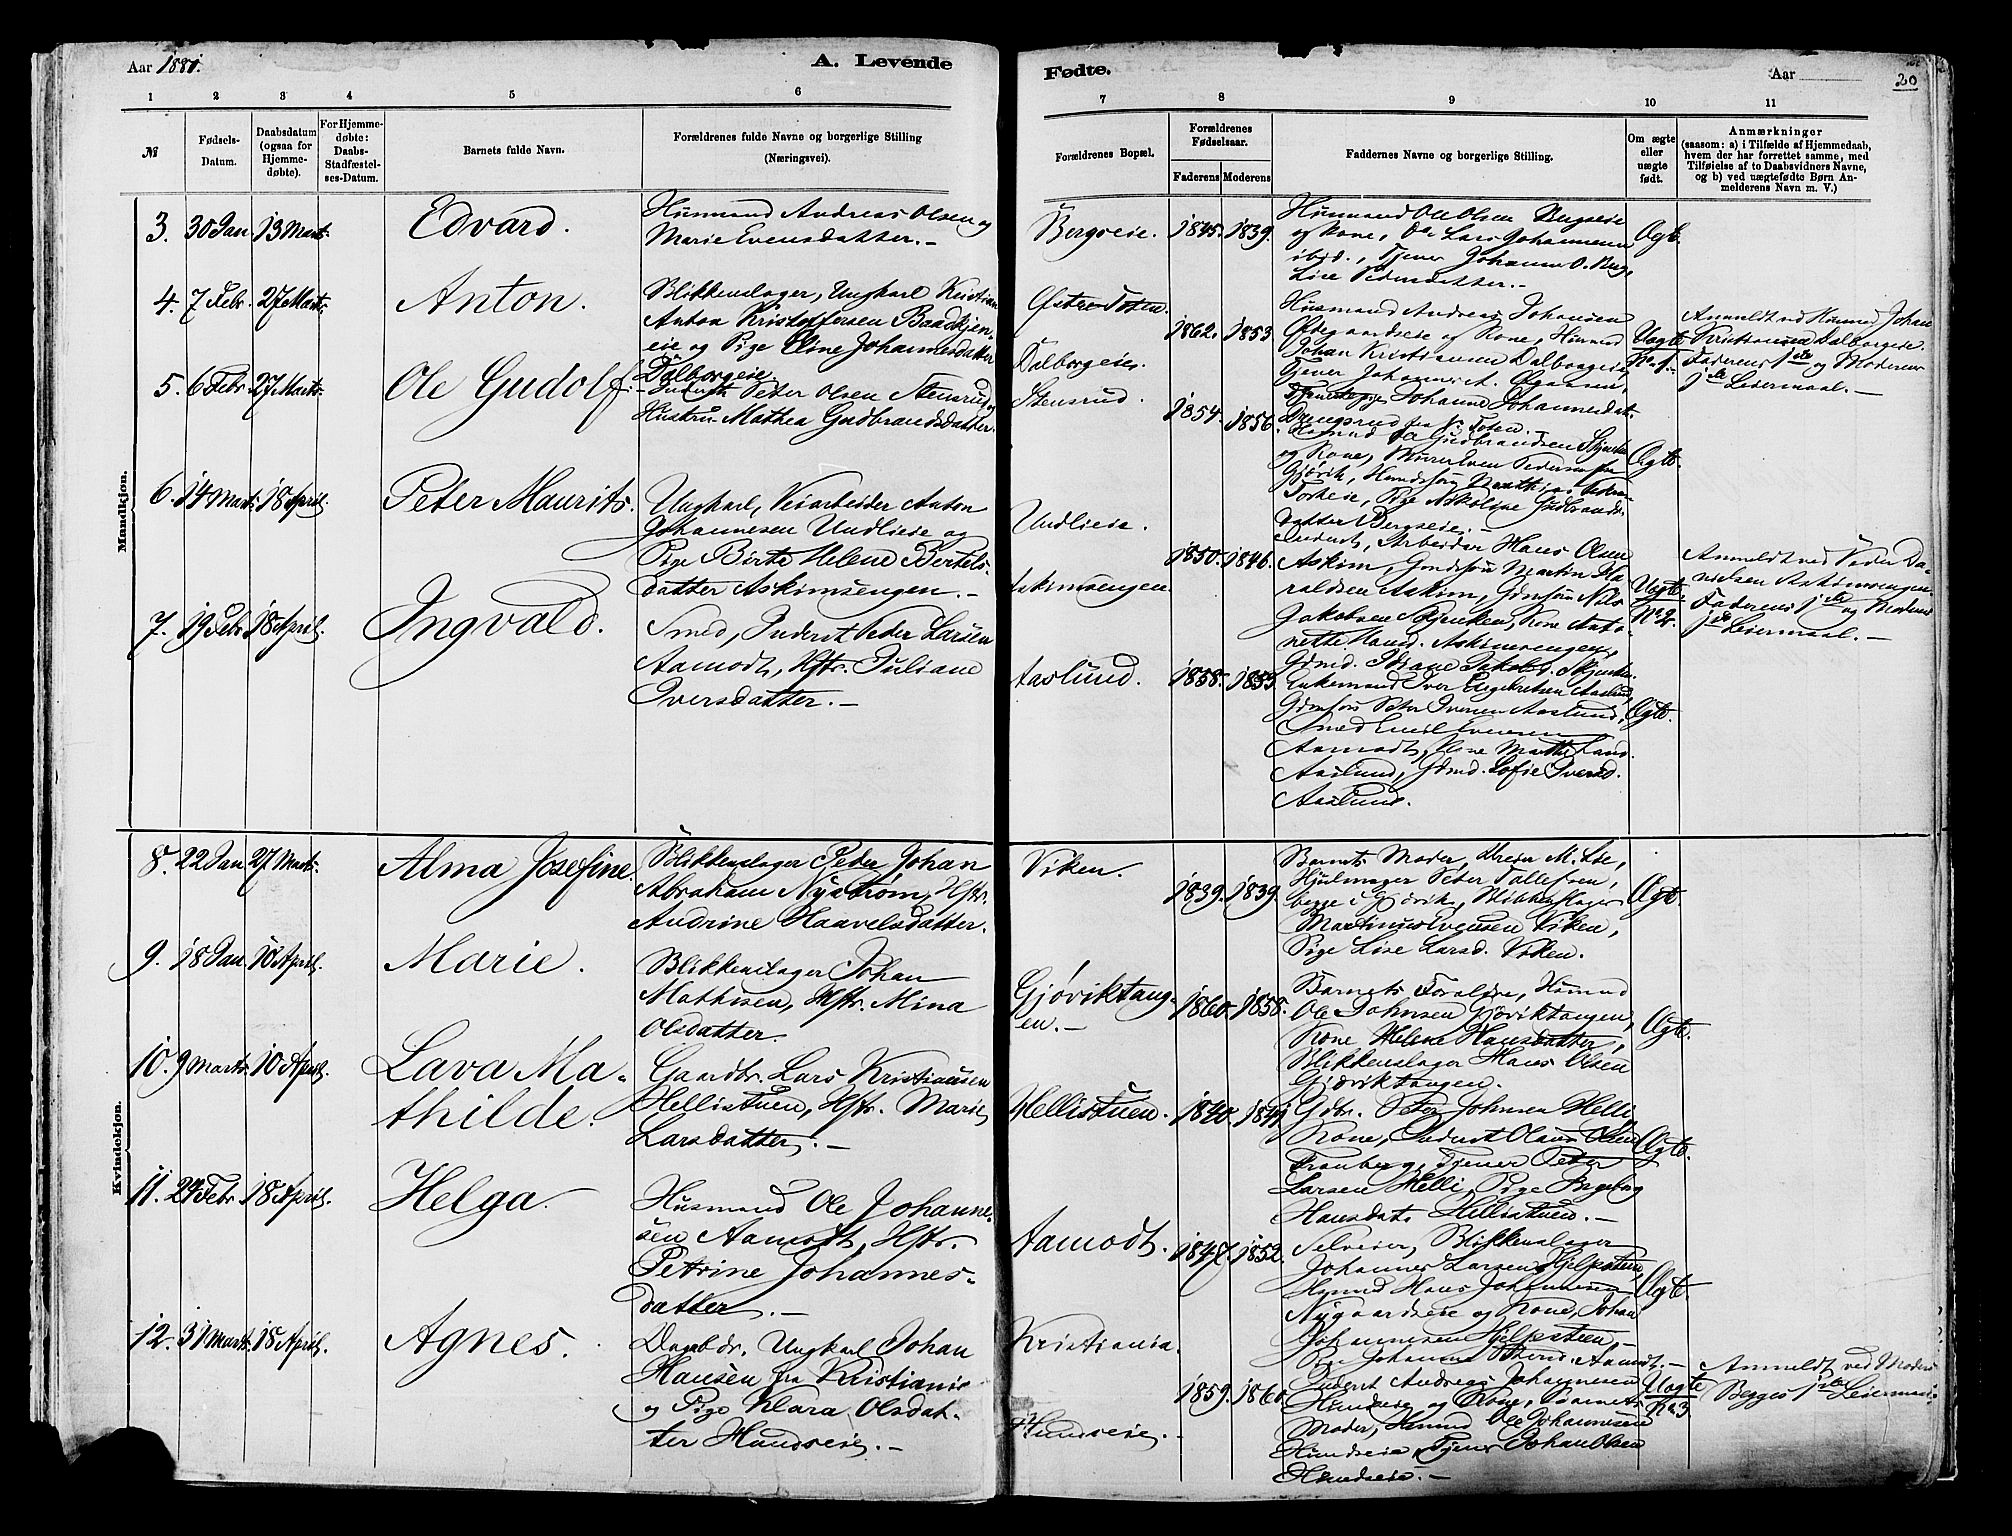 Aar 1881.
A. Levende
Fødte.
Aar
20
1 2 3 4 5 6
7 8 9 10 11
№
Fødsels-
Datum.
Daabsdatum
(ogsaa for
Hjemme-
døbte).
For Hjemme-
døbte:
Daabs-
Stadfæstel-
ses-Datum.
Barnets fulde Navn.
Forældrenes fulde Navne og borgerlige Stilling
(Næringsvei).
Forældrenes Bopæl.
Forældrenes
Fødselsaar.
Faderens Moderens
Faddernes Navne og borgerlige Stilling.
Om ægte
eller
uægte
født.
Anmærkninger
(saasom: a) i Tilfælde af Hjemmedaab,
hvem der har forrettet samme, med
Tilføielse af to Daabsvidners Navne,
og b) ved uægtefødte Børn An-
melderens Navn m. V.)
Mandkjøn.
3. 30 Jan 13 Marts Edvard.
Husmand Andreas Olsen og
Marie Evensdatter.
Bergseie. 1845. 1839.
Husmand Ole Olsen Bergseie
og Kone, Do Lars Johannesen
ibid., Tjener Johannes O. Berg,
Lise Pedersdatter.
Ægte.
4. 7 Febr. 27 Marts Anton.
Blikkenslager, Ungkarl Kristian
Anton Kristoffersen Baadkjen-
eie og Pige Eline Johannesdatter
Dalborgeie.
Østre Toten.
Dalborgeie. 1862. 1853
Husmand Andreas Johansen
Ødegaardseie og Kone, Husmd
Johan Kristiansen Dalborgeie
Tjener Johannes A.
Tjenestepige Johanne Johannesdat-
fra V. Toten.
Uægte
No 1.
Anmeldt ved Husmd Johan
Kristiansen Dalborgeie.
Faderens 1ste og Moderens
1ste Leiermaal.
5. 6 Febr 27 Marts Ole Gudolf.
Inderst Peter Olsen Stensrud og
Hustru Mathea Gudbrandsdatter.
Stensrud. 1854. 1856.
Gudbrandsen
og Kone, Even Pedersen fra
Gjøvik,
Gudbrands-
datter Bergseie.
Ægte.
6. 14 Marts 18 April. Peter Maurits.
Ungkarl, Veiarbeider Anton
Johannesen Undlieie og
Pige Birte Helene Bertels-
datter Askimsengen.
Undlieie.
Askimsengen. 1850. 1846.
Inderst, Arbeider Hans Olsen
Askim, Gmdsøn Martin Ha-
raldsen Askim, Gdmsøn Nils
Jakobsen Skjenken, Kone Anto-
nette Askimsengen,
Gdmd. Jakobsd. Skjenken.
Uægte.
No 2.
Anmeldt ved Fader Da-
nielsen Askimsengen.
Faderens 1ste og Moderens
1ste Leiermaal.
7. 19 Febr 18 April. Ingvald.
Smed, Inderst Peder Larsen
Aamodt, Hstr. Juliane
Iversdatter.
Aaslund. 1858. 1853.
Enkemand Iver Engebretsen Aaslund,
Gdmsøn Peter Iversen Aaslund,
Smed Emil Evensen
Aamodt, Marthe Lars
Aaslund, Gdmd. Sofie Iversd.
Aaslund.
Ægte.
Kvindekjøn.
8. 22 Jan 27 Marts Alma Josefine.
Blikkenslager Peder Johan
Abraham Nystrøm, Hstr.
Andrine Haavelsdatter.
Viken. 1839. 1839.
Barnets Moder,
Hjulmager Peter Tollefsen,
begge i Gjøvik, Blikkenslager
Martinus Evensen Viken,
Pige Lise Larsd. Viken.
Ægte
9. 18 Jan 10 April. Marie.
Blikkenslager Johan
Mathisen, Hstr. Mina
Olsdatter.
Gjøviktang-
en. 1860. 1858.
Barnets Forældre, Husmd
Ole Johnsen Gjøviktangen,
Kone Helene Hansdatter,
Blikkenslager Hans Olsen
Gjøviktangen.
Ægte.
10. 9 Marts 10 April. Lava Ma-
thilde.
Gaardbr. Lars Kristiansen
Hellistuen, Hstr. Marie
Larsdatter.
Hellistuen. 1840. 1841
Gdbr. Peter Johnsen Helli,
Kone, Inderst Olaus Olsen
Tranberg, Tjener Peter
Larsen Helli, Pige Ingeborg
Hansdatt. Hellistuen.
Ægte.
11. 24 Febr 18 April. Helga.
Husmand Ole Johanne-
sen Aamodt, Hstr.
Petrine Johannes-
datter.
Aamodt. 1847. 1852.
Selveier, Blikkenslager
Johannes Larsen Hjelpsteen,
Husmd Hans Johannesen
Nygaardseie og Kone, Johan
Johannesen Hjelpsteen,
Pige Johanne Aamodt.
Ægte.
12. 31 Marts 18 April. Agnes.
Dagbdr. Ungkarl Johan
Hansen fra Kristiania
og Pige Klara Olsdat-
ter Hundseie.
Kristiania.
Hundseie. 1859. 1860
Inderst Andreas Johannesen
Hundseie og Kone, Barnets
Moder, Husmd Ole Johannesen
Hundseie, Tjener Johan Olsen
Hundseie.
Uægte
No 3.
Anmeldt ved Moder.
Begges 1ste Leiermaal.